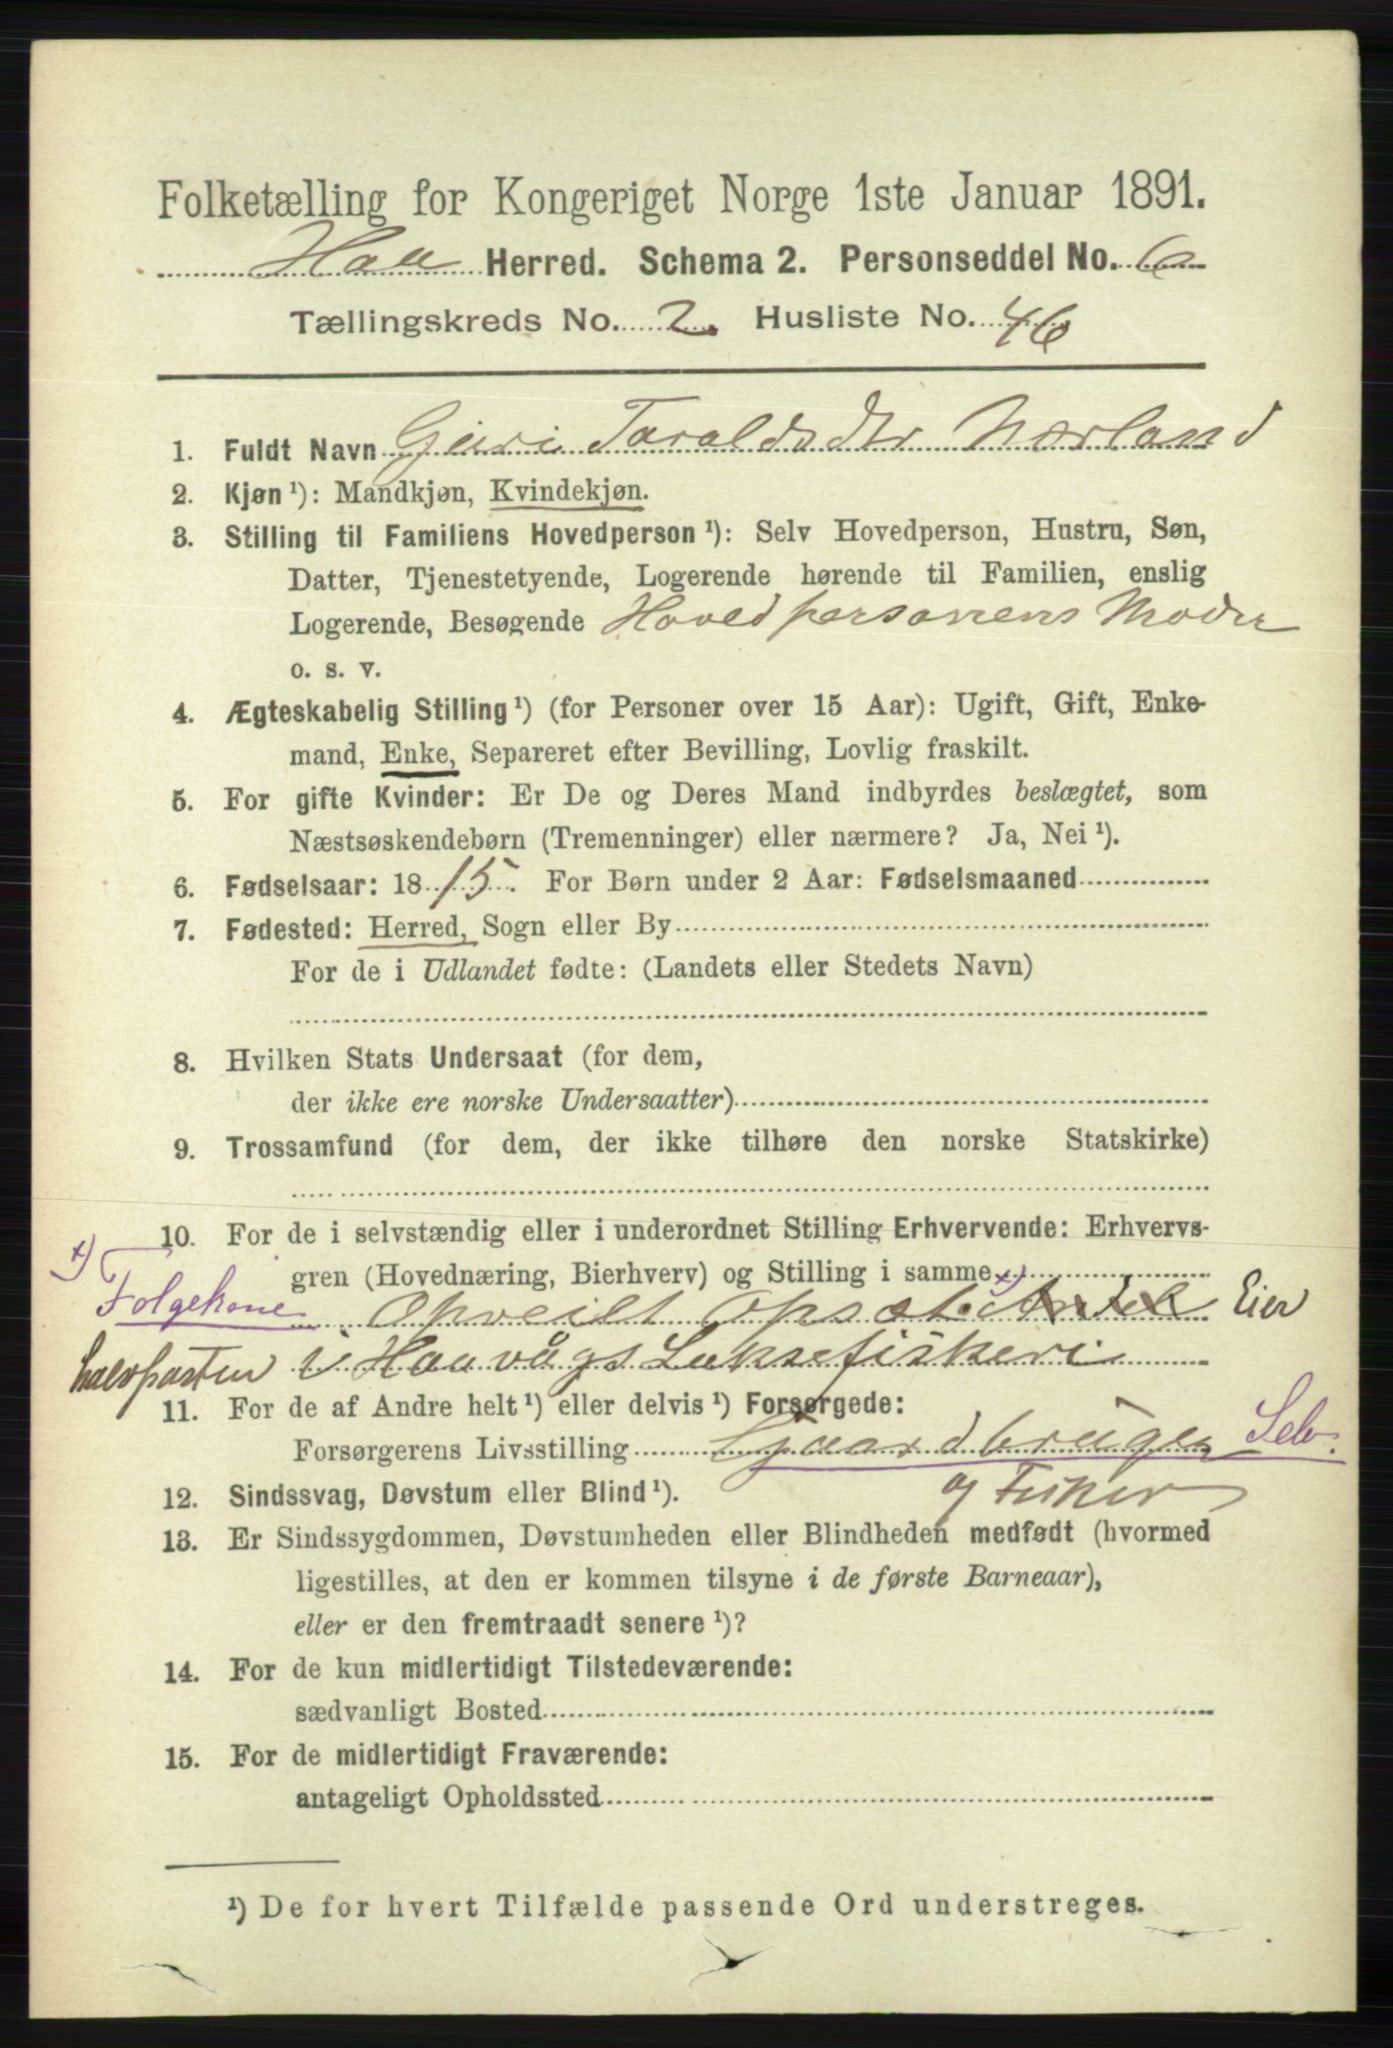 Folketælling for Kongeriget Norge 1ste Januar 1891.
Haa Herred. Schema 2. Personseddel No. 6
Tællingskreds No. 2. Husliste No. 46
1. Fuldt Navn Guri Taraldsdtr Nærland
2. Kjøn ¹): Mandkjøn, Kvindekjøn.
3. Stilling til Familiens Hovedperson ¹): Selv Hovedperson, Hustru, Søn,
Datter, Tjenestetyende, Logerende hørende til Familien, enslig
Logerende, Besøgende Hovedpersonens Moder
o. s. v.
4. Ægteskabelig Stilling ¹) (for Personer over 15 Aar): Ugift, Gift, Enke-
mand, Enke, Separeret efter Bevilling, Lovlig fraskilt.
5. For gifte Kvinder: Er De og Deres Mand indbyrdes beslægtet, som
Næstsøskendebørn (Tremenninger) eller nærmere? Ja, Nei ¹).
6. Fødselsaar: 1815. For Børn under 2 Aar: Fødselsmaaned
7. Fødested: Herred, Sogn eller By
For de i Udlandet fødte: (Landets eller Stedets Navn)
8. Hvilken Stats Undersaat (for dem,
der ikke ere norske Undersaatter)
9. Trossamfund (for dem, der ikke tilhøre den norske Statskirke)
10. For de i selvstændig eller i underordnet Stilling Erhvervende: Erhvervs-
gren (Hovednæring, Bierhverv) og Stilling i samme x)
x) Folgekone Eier
halvparten i Haavågs Laksefiskeri
11. For de af Andre helt ¹) eller delvis ¹) Forsørgede:
Forsørgerens Livsstilling Gaardbruger Selv.
og Fisker
12. Sindssvag, Døvstum eller Blind ¹).
13. Er Sindssygdommen, Døvstumheden eller Blindheden medfødt (hvormed
ligestilles, at den er kommen tilsyne i de første Barneaar),
eller er den fremtraadt senere ¹)?
14. For de kun midlertidigt Tilstedeværende:
sædvanligt Bosted
15. For de midlertidigt Fraværende:
antageligt Opholdssted
¹) De for hvert Tilfælde passende Ord understreges.